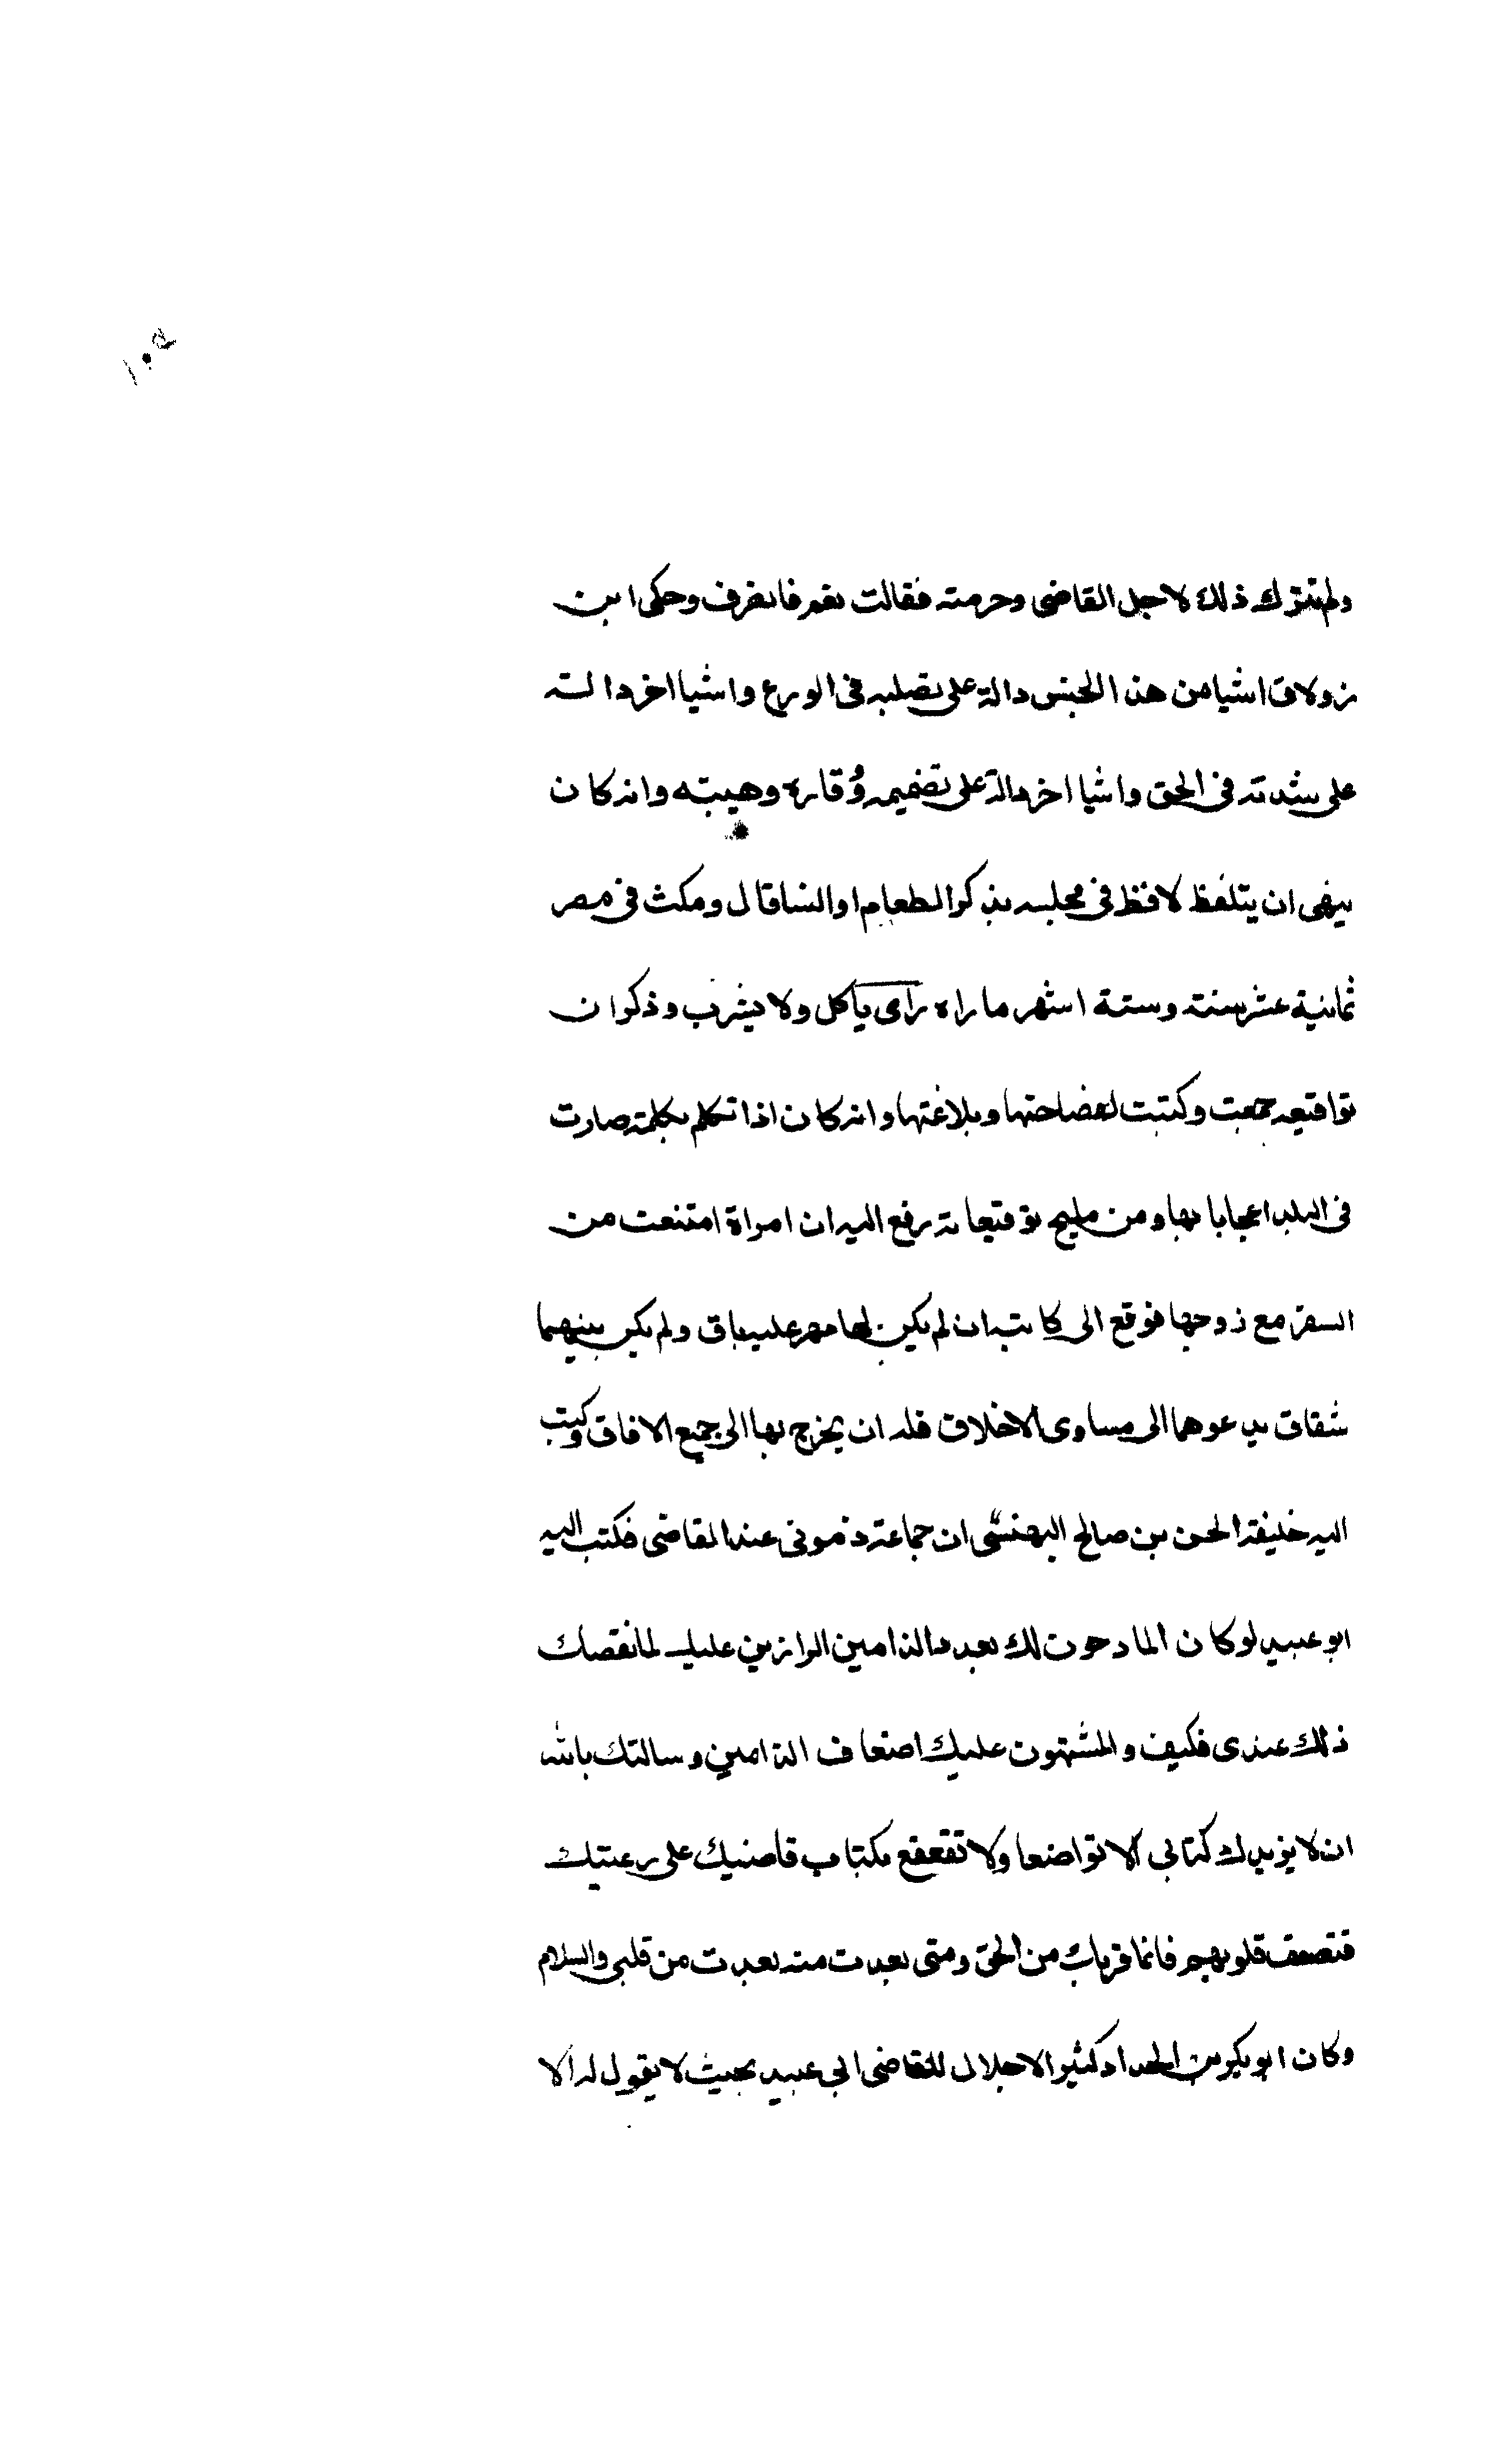 ١٠٥
ولم تترك ذلك لاجل القاضى وحرمته فقالت نعم فانصرف وحكى ابن
زولاق اشيا من هذا الجنس دالة على تصلبه فى الورع واشيا اخر دالة
على شدته فى الحق واشيا اخر دالة على تضميمه وُقاره وهيبته وانه كان
ينهى ان يتلفظ لافظ فى مجلسه بذكر الطعام او النسا قال ومكث فى مصر
ثمانية عشر سنة وستة اشهر ما راه رأى ياكل ولا يشرب وذكر ان
تواقيعه جمعت وكتبت لفصاحتها وبلاغتها وانه كان اذا تكلم بكلمة صارت
فى البلد اعجابا بها ومن مليح توقيعاته رفع اليه ان امراة امتنعت من
السفر مع زوجها فوقع الى كاتبه ان لم يكن لها مهر عليه باق ولم يكن بينهما
شقاق يدعوهما الى مساوى الاخلاق فله ان يخرج بها الى جميع الافاق وكتب
اليه خليفة الحسن بن صالح البهنسى ان جماعة ذمونى عند القاضى فكتب اليه
ابو عبيد لو كان المادحون لك بعدد الذامين الوازرين عليك لما نقصك
ذلك عندى فكيف والمثنون عليك اضعاف الذامين وسالتك بالله
ان لا يزيدك كتابى الا تواضعا ولا تقعقع بكتاب قاضيك على رعيتك
فتضعف قلوبهم فانما قربك من الحق ومتى بعدت منه بعدت من قلبى والسلام
وكان ابو بكر بن الحداد كثير الاجلال للقاضى ابى عبيد بحيث لا يقول له الا